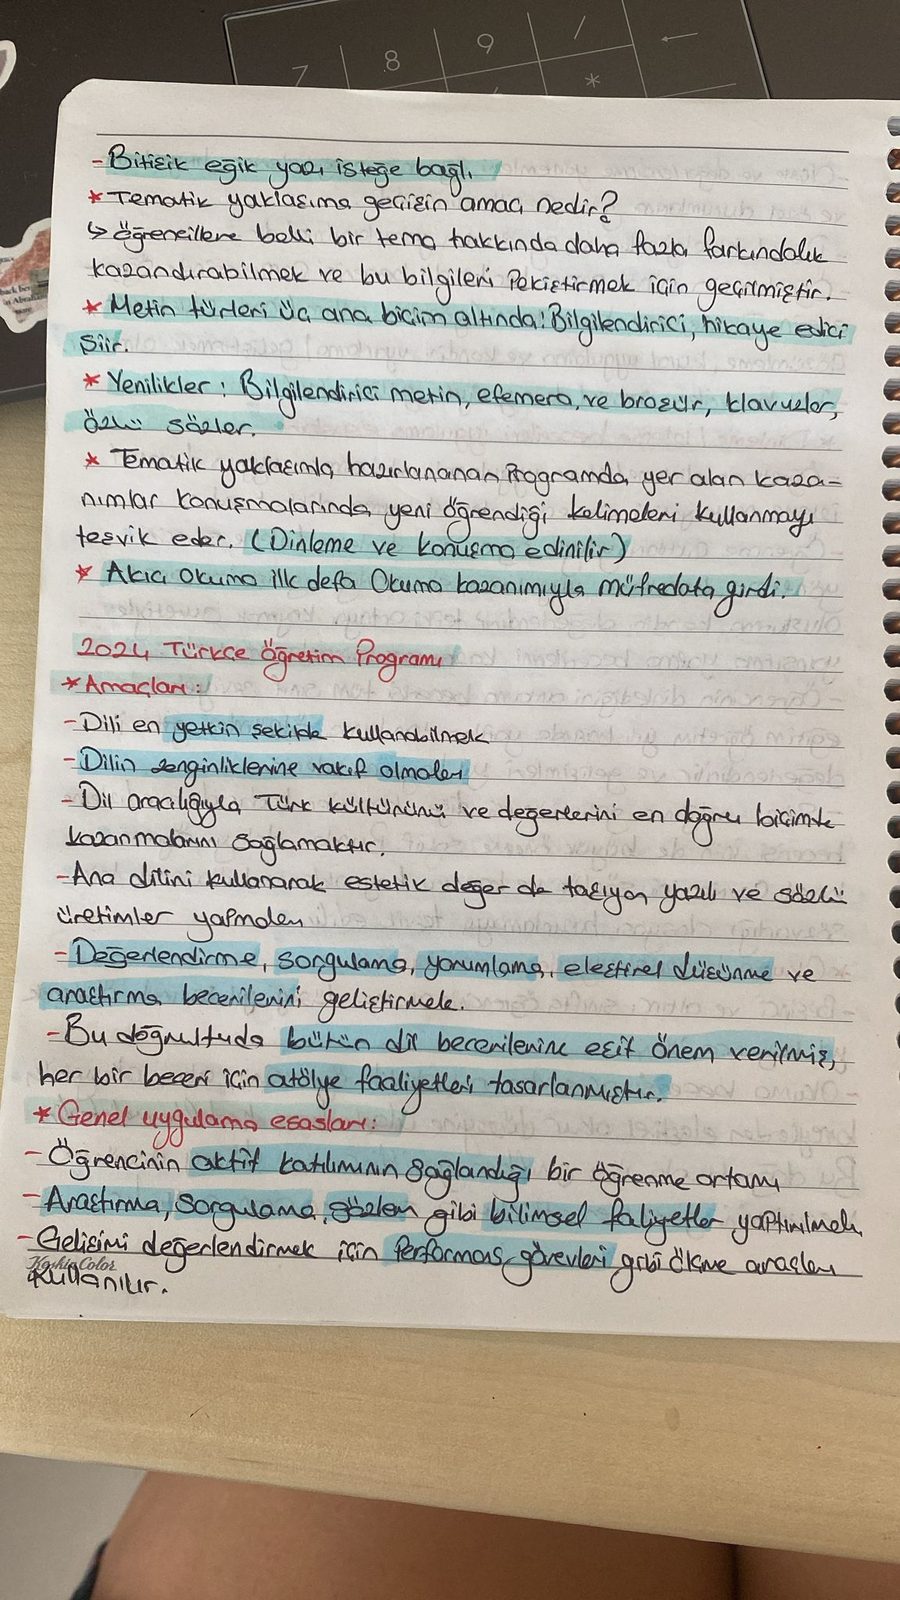 7 8 9 / ←
*
- Bitişik eğik yazı isteğe bağlı
* Tematik yaklaşıma geçişin amacı nedir?
↳ öğrencilere belli bir tema hakkında daha fazla farkındalık
kazandırabilmek ve bu bilgileri pekiştirmek için geçilmiştir.
* Metin türleri üç ana biçim altında: Bilgilendirici, hikaye edici
şiir.
* Yenilikler: Bilgilendirici metin, efemera, ve broşür, klavuzlar,
özlü sözler.
* Tematik yaklaşımla hazırlananan programda yer alan kaza-
nımlar konuşmalarında yeni öğrendiği kelimeleri kullanmayı
teşvik eder. (Dinleme ve konuşma edinilir)
* Akıcı okuma ilk defa Okuma kazanımıyla müfredata girdi.
2024 Türkçe Öğretim Programı
* Amaçları:
- Dili en yetkin şekilde kullanabilmek
- Dilin zenginliklerine vakıf olmaları
- Dil aracılığıyla Türk kültürünü ve değerlerini en doğru biçimde
kazanmalarını sağlamaktır.
- Ana dilini kullanarak estetik değer de taşıyan yazılı ve sözlü
üretimler yapmaları
- Değerlendirme, sorgulama, yorumlama, eleştirel düşünme ve
araştırma becerilerini geliştirmek.
- Bu doğrultuda bütün dil becerilerine eşit önem verilmiş,
her bir beceri için atölye faaliyetleri tasarlanmıştır.
* Genel uygulama esasları:
- Öğrencinin aktif katılımının sağlandığı bir öğrenme ortamı
- Araştırma, sorgulama, gözlem gibi bilimsel faliyetler yaptırılmalı
- Gelişimi değerlendirmek için performans görevleri gibi ölçme araçları
kullanılır.
KeskinColor